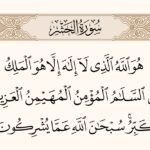 سُورَةُ الحَشْرِ
هُوَ ٱللَّهُ ٱلَّذِى لَآ إِلَٰهَ إِلَّا هُوَ ٱلْمَلِكُ
ٱلسَّلَٰمُ ٱلْمُؤْمِنُ ٱلْمُهَيْمِنُ ٱلْعَزِيزُ
سُبْحَٰنَ ٱللَّهِ عَمَّا يُشْرِكُونَ